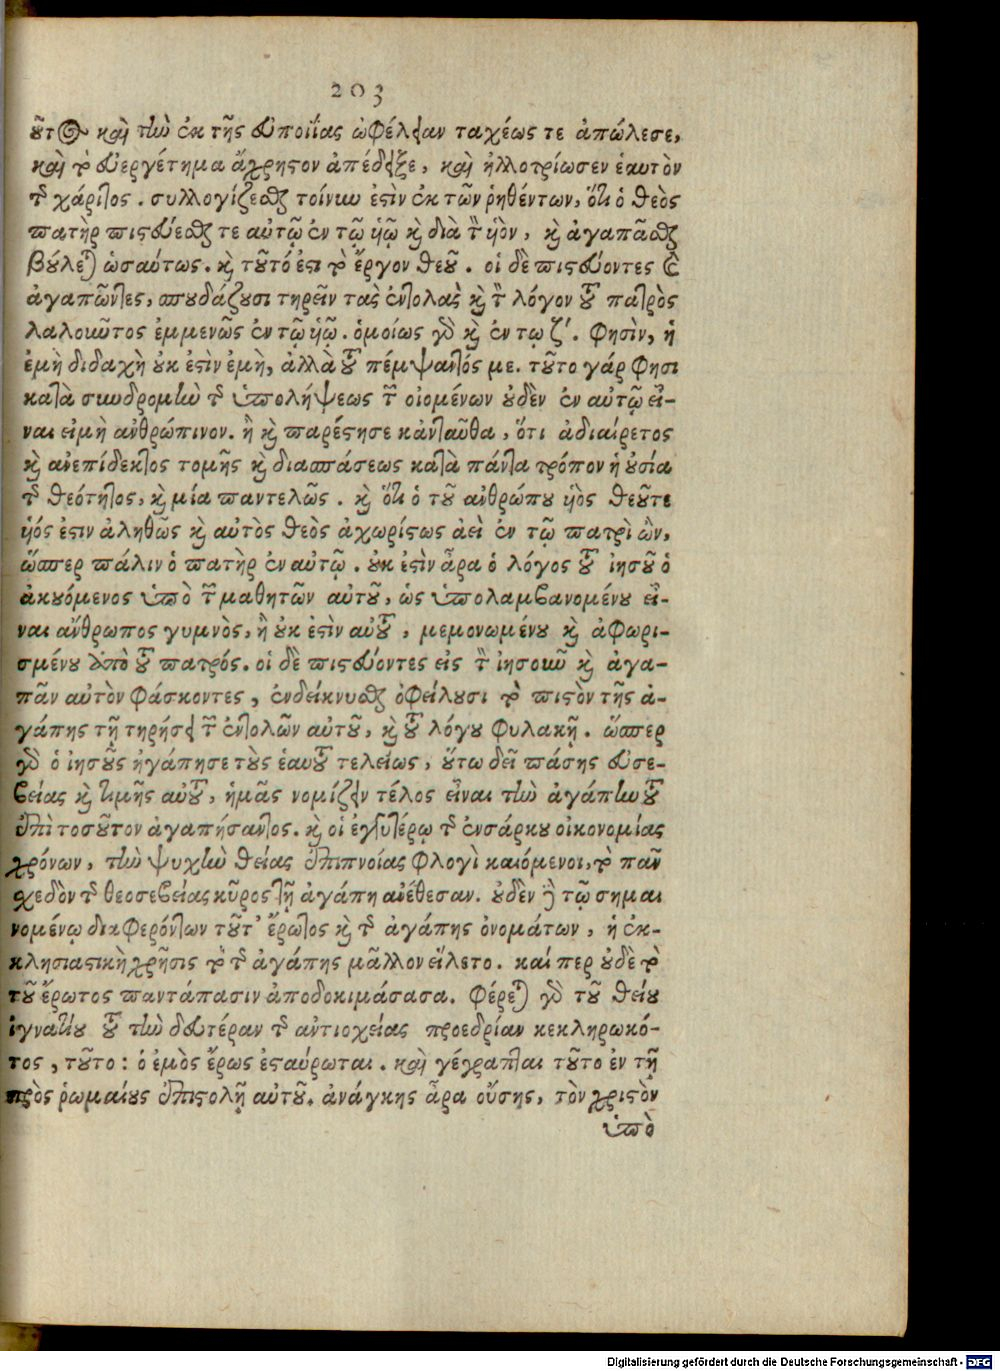 203
οὗτος καὶ τὴν ἐκ τῆς εὐποιΐας ὠφέλειαν ταχέως τε ἀπώλεσε,
καὶ τὸ εὐεργέτημα ἄχρηστον ἀπέδειξε, καὶ ἠλλοτρίωσεν ἑαυτὸν
τῆς χάριτος. συλλογίζεσθαι τοίνυν ἐστὶν ἐκ τῶν ῥηθέντων, ὅτι ὁ θεὸς
πατὴρ πιστεύεσθαί τε αὐτῷ ἐν τῷ υἱῷ καὶ διὰ τὸν υἱὸν, καὶ ἀγαπᾶσθαι
βούλεται ὡσαύτως. καὶ τοῦτό ἐστι τὸ ἔργον θεοῦ. οἱ δὲ πιστεύοντες καὶ
ἀγαπῶντες, σπουδάζουσι τηρεῖν τὰς ἐντολὰς καὶ τὸν λόγον τοῦ πατρὸς
λαλοῦντος ἐμμενῶς ἐν τῷ υἱῷ. ὁμοίως γὰρ καὶ ἐν τῳ ζʹ. φησὶν, ἡ
ἐμὴ διδαχὴ οὐκ ἐστὶν ἐμὴ, ἀλλὰ τοῦ πέμψαντός με. τοῦτο γάρ φησι
κατὰ συνδρομὴν τῆς ὑπολήψεως τῶν οἰομένων οὐδὲν ἐν αὐτῷ εἶ-
ναι εἰμὴ ἀνθρώπινον. ἢ καὶ παρέστησε κἀνταῦθα, ὅτι ἀδιαίρετος
καὶ ἀνεπίδεκτος τομῆς καὶ διασπάσεως κατὰ πάντα τρόπον ἡ οὐσία
τῆς θεότητος, καὶ μία παντελῶς. καὶ ὅτι ὁ τοῦ ἀνθρώπου υἱὸς θεοῦτε
υἱός ἐστιν ἀληθῶς καὶ αὐτὸς θεὸς ἀχωρίστως ἀεὶ ἐν τῷ πατρὶ ὢν,
ὥσπερ πάλιν ὁ πατὴρ ἐν αὐτῷ. οὐκ ἐστὶν ἆρα ὁ λόγος τοῦ ἰησοῦ ὁ
ἀκουόμενος ὑπὸ τῶν μαθητῶν αὐτοῦ, ὡς ὑπολαμβανομένου εἶ-
ναι ἄνθρωπος γυμνὸς, ἢ οὐκ ἐστὶν αὐτοῦ, μεμονωμένου καὶ ἀφωρι-
σμένου ἀπὸ τοῦ πατρός. οἱ δὲ πιστεύοντες εἰς τὸν ἰησοῦν καὶ ἀγα-
πᾶν αὐτὸν φάσκοντες, ἐνδείκνυσθαι ὀφείλουσι τὸ πιστὸν τῆς ἀ-
γάπης τῇ τηρήσει τῶν ἐντολῶν αὐτοῦ, καὶ τοῦ λόγου φυλακῇ. ὥσπερ
γὰρ ὁ ἰησοῦς ἠγάπησε τοὺς ἑαυτοῦ τελείως, οὕτω δεῖ πάσης εὐσε-
βείας καὶ τιμῆς αὐτοῦ, ἡμᾶς νομίζειν τέλος εἶναι τὴν ἀγάπην τοῦ
ἐπὶ τοσοῦτον ἀγαπήσαντος. καὶ οἱ ἐγγυτέρω τῆς ἐνσάρκου οἰκονομίας
χρόνων, τὴν ψυχὴν θείας ἐπιπνοίας φλογὶ καιόμενοι, τὸ πᾶν
σχεδὸν τῆς θεοσεβείας κῦρος τῇ ἀγάπῃ ἀνέθεσαν. οὐδὲν γὰρ τῷ σημαι
νομένῳ διαφερόντων τοῦτ' ἔρωτος καὶ τῆς ἀγάπης ὀνομάτων, ἡ ἐκ-
κλησιαστικὴ χρῆσις τὸ τῆς ἀγάπης μᾶλλον εἵλετο. καίπερ οὐδὲ τὸ
τοῦ ἔρωτος παντάπασιν ἀποδοκιμάσασα. φέρεται γὰρ τοῦ θείου
ἰγνατίου τοῦ τὴν δευτέραν τῆς ἀντιοχείας προεδρίαν κεκληρωκό-
τος, τοῦτο: ὁ ἐμὸς ἔρως ἐσταύρωται. καὶ γέγραπται τοῦτο ἐν τῇ
πρὸς ῥωμαίους ἐπιστολῇ αὐτοῦ. ἀνάγκης ἆρα οὔσης, τὸν χριστὸν
ὑπὸ
Digitalisierung gefördert durch die Deutsche Forschungsgemeinschaft - DFG